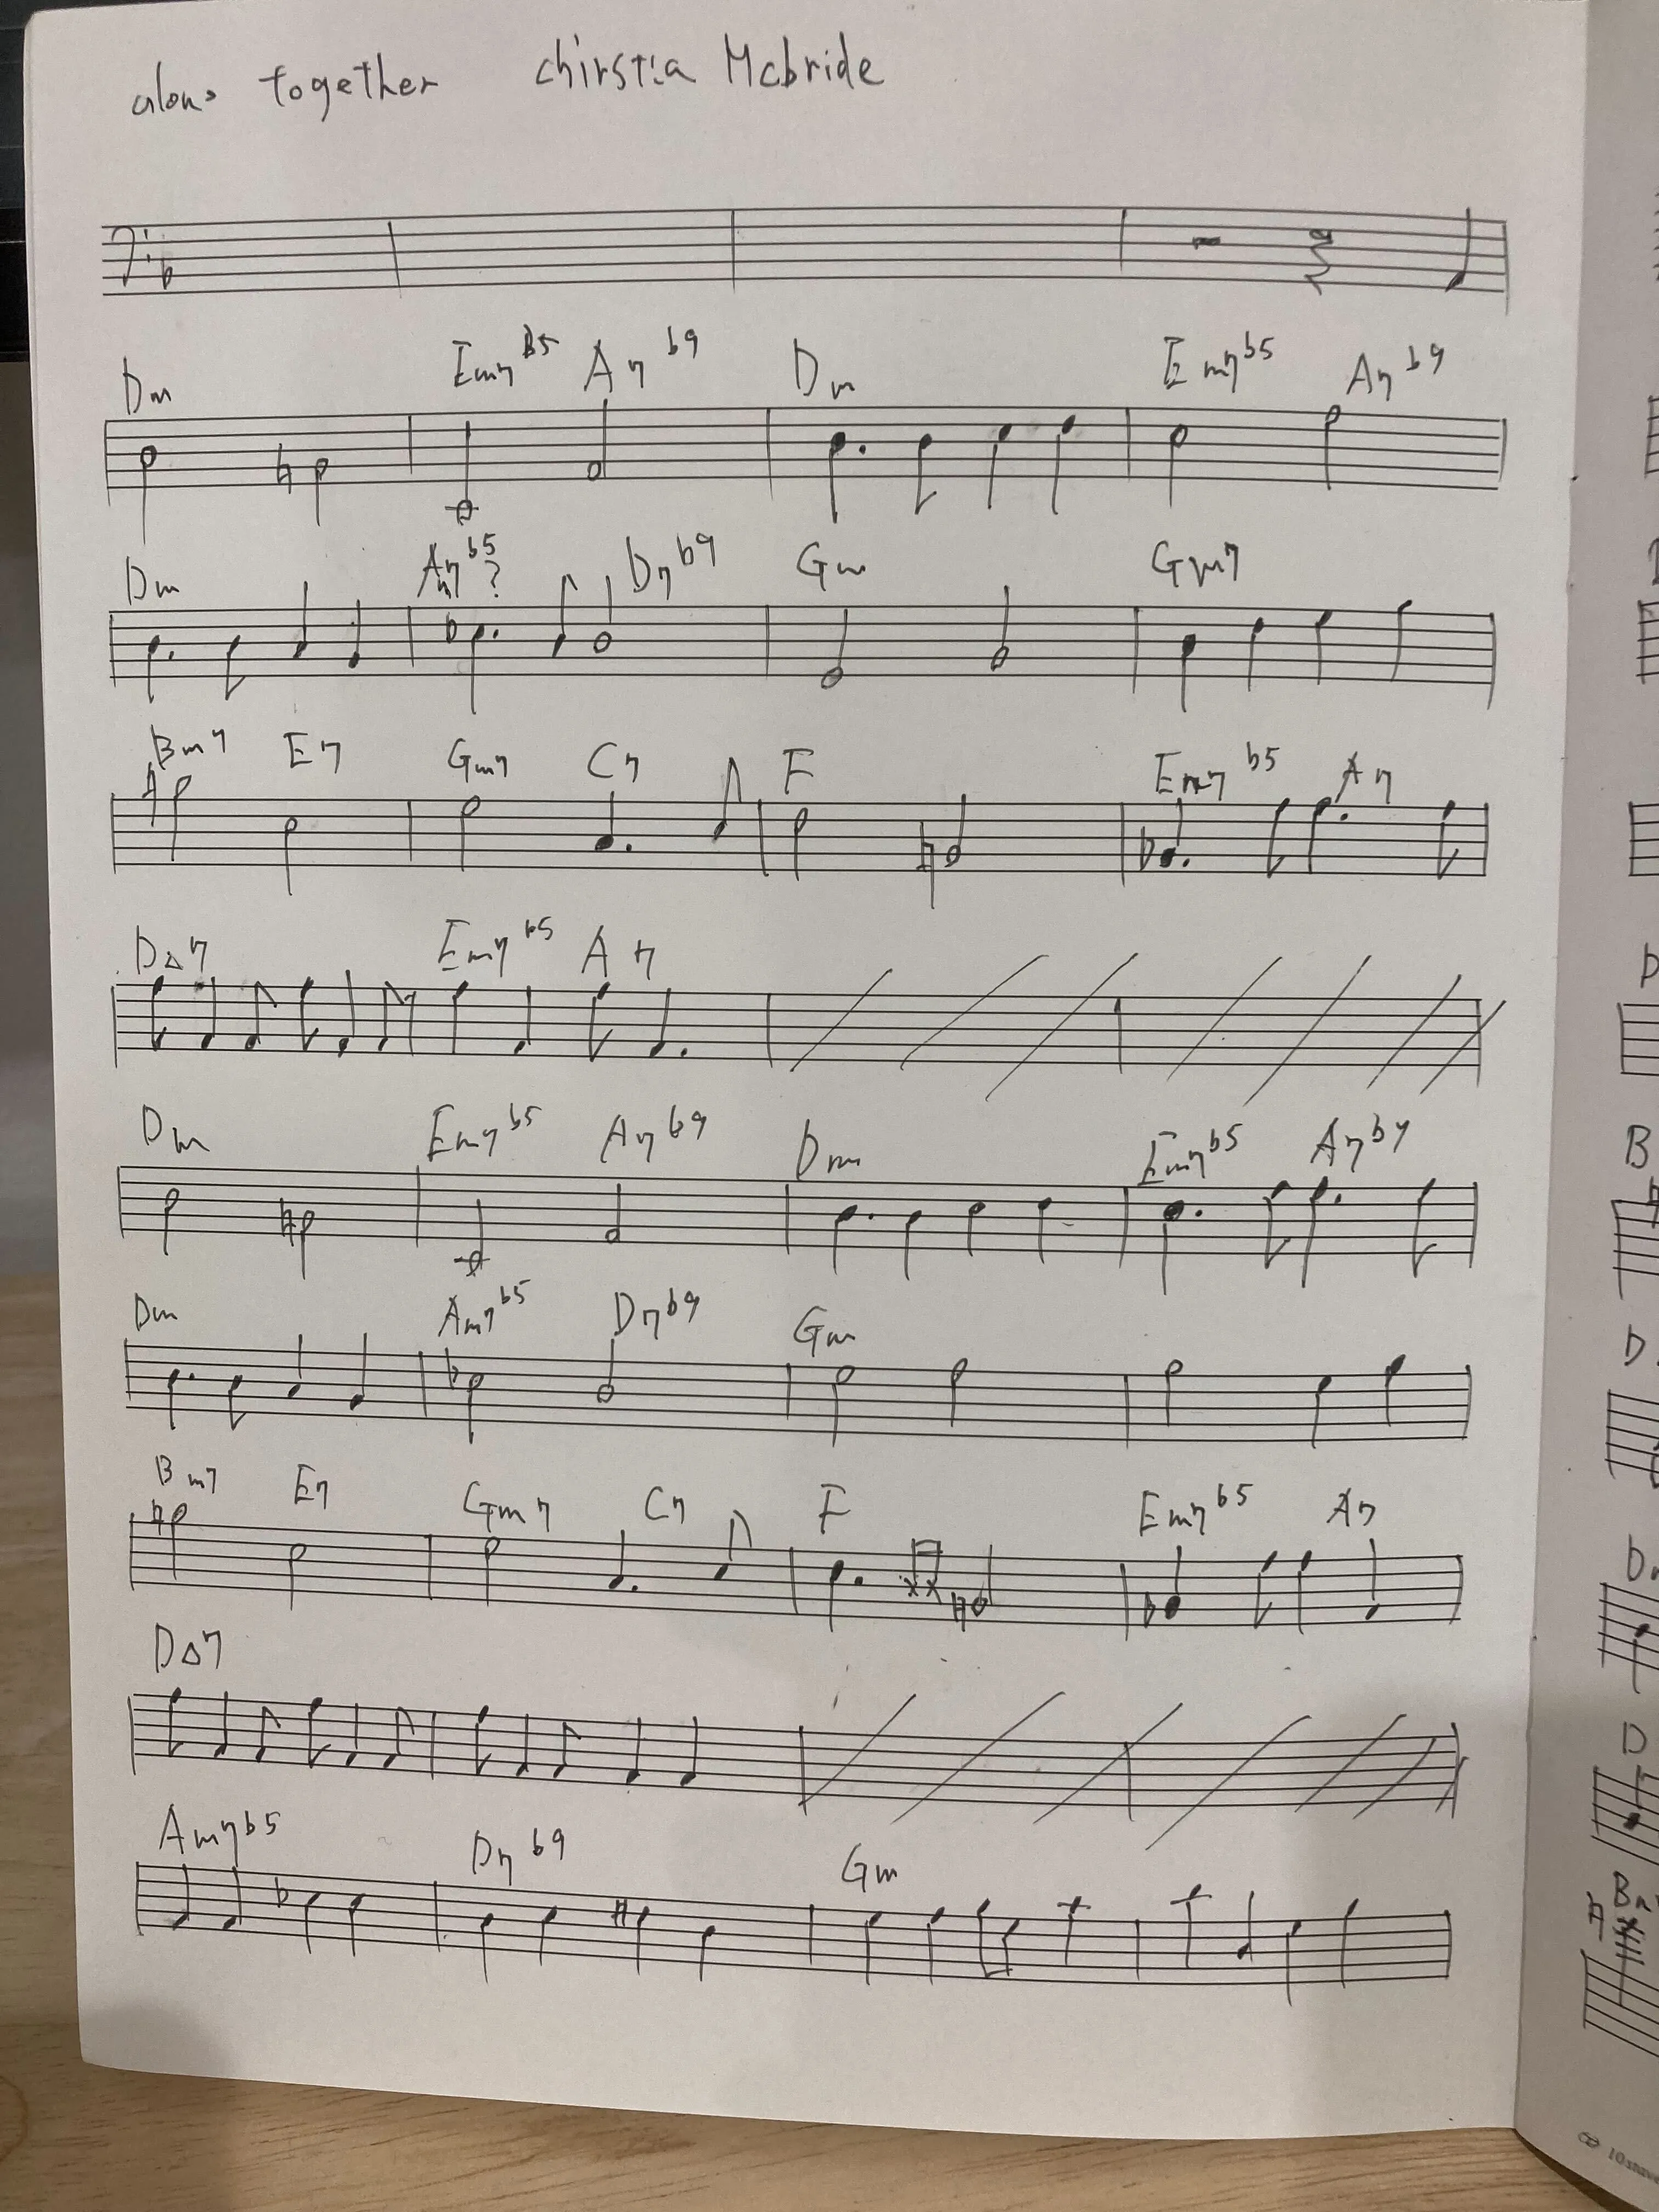 alone together chirstia Mcbride
Dm Em7b5 A7b9 Dm Em7b5 A7b9
Dm Am7b5? D7b9 Gm Gm7
Bm7 E7 Gm7 C7 F Em7b5 A7
D△7 Em7b5 A7
Dm Em7b5 A7b9 Dm Em7b5 A7b9
Dm Am7b5 D7b9 Gm
Bm7 E7 Gm7 C7 F Em7b5 A7
D△7
Am7b5 D7b9 Gm
D
B
D
D
D